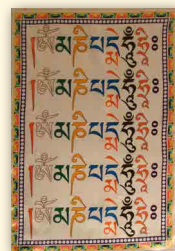 །ཨོཾ་མ་ཎི་པ་དྨེ་ཧཱུྃ་ཧྲཱིཿ
།ཨོཾ་མ་ཎི་པ་དྨེ་ཧཱུྃ་ཧྲཱིཿ
།ཨོཾ་མ་ཎི་པ་དྨེ་ཧཱུྃ་ཧྲཱིཿ
།ཨོཾ་མ་ཎི་པ་དྨེ་ཧཱུྃ་ཧྲཱིཿ
།ཨོཾ་མ་ཎི་པ་དྨེ་ཧཱུྃ་ཧྲཱིཿ